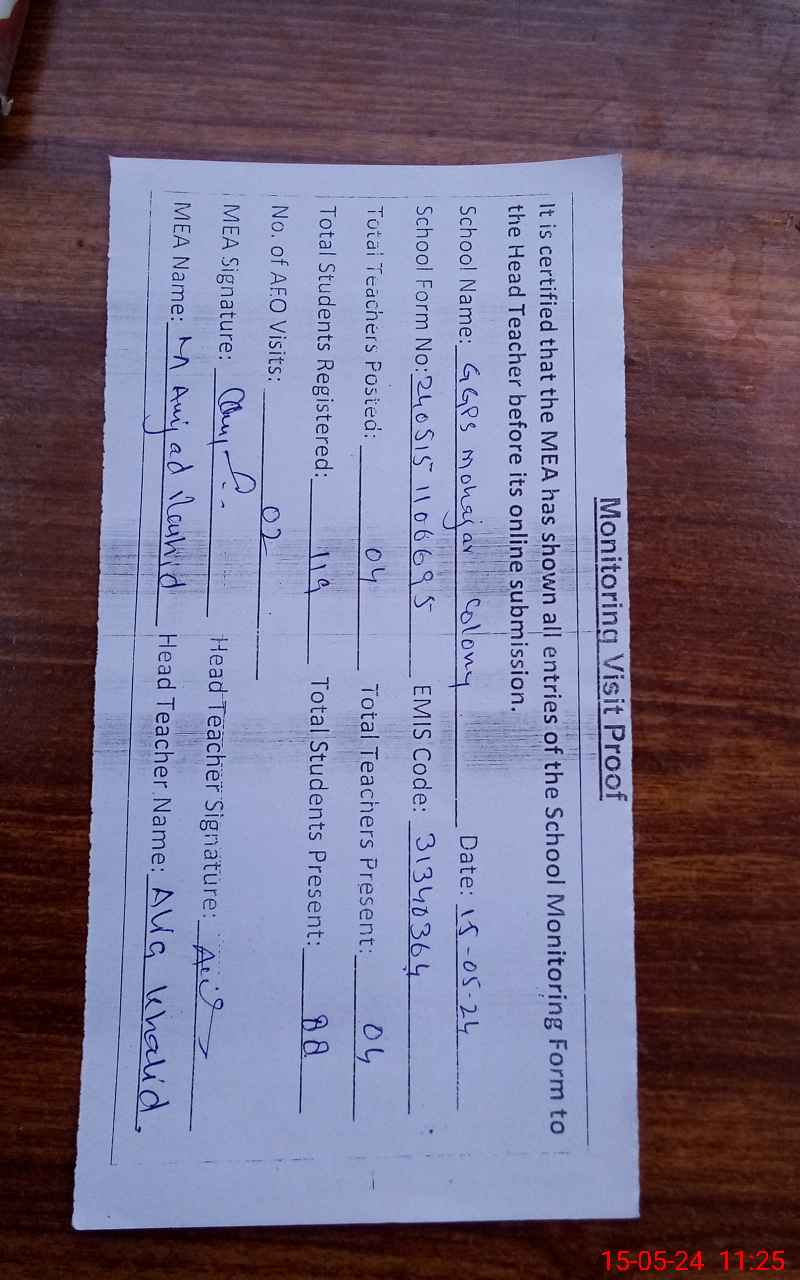 Monitoring Visit Proof
It is certified that the MEA has shown all entries of the School Monitoring Form to
the Head Teacher before its online submission.
School Name: GGPS Mohajar Colony Date: 15-05-24
School Form No: 240515 1106695 EMIS Code: 31340364
Total Teachers Posted: 04 Total Teachers Present: 04
Total Students Registered: 119 Total Students Present: 88
No. of AEO Visits: 02
MEA Signature: Head Teacher Signature:
MEA Name: M Amjad Rashid Head Teacher Name: Khalid.
15-05-24 11:25